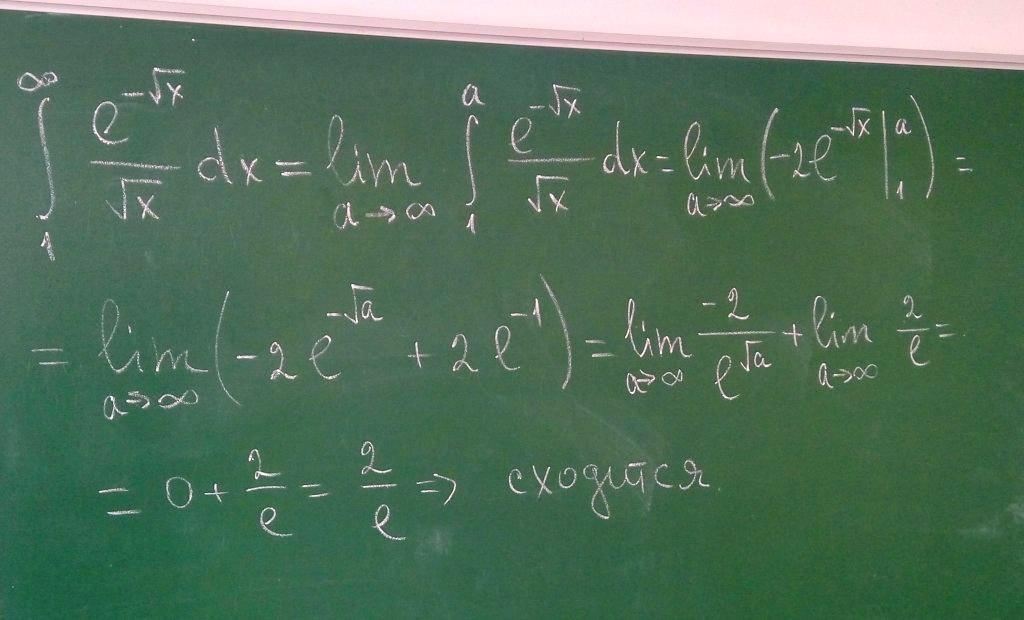 ∫₁^∞ e^{-√x}/√x dx = lim_{a→∞} ∫₁^a e^{-√x}/√x dx = lim_{a→∞} (-2e^{-√x} |₁^a) =
= lim_{a→∞} (-2e^{-√a} + 2e^{-1}) = lim_{a→∞} -2/e^{√a} + lim_{a→∞} 2/e =
= 0 + 2/e = 2/e ⇒ сходится